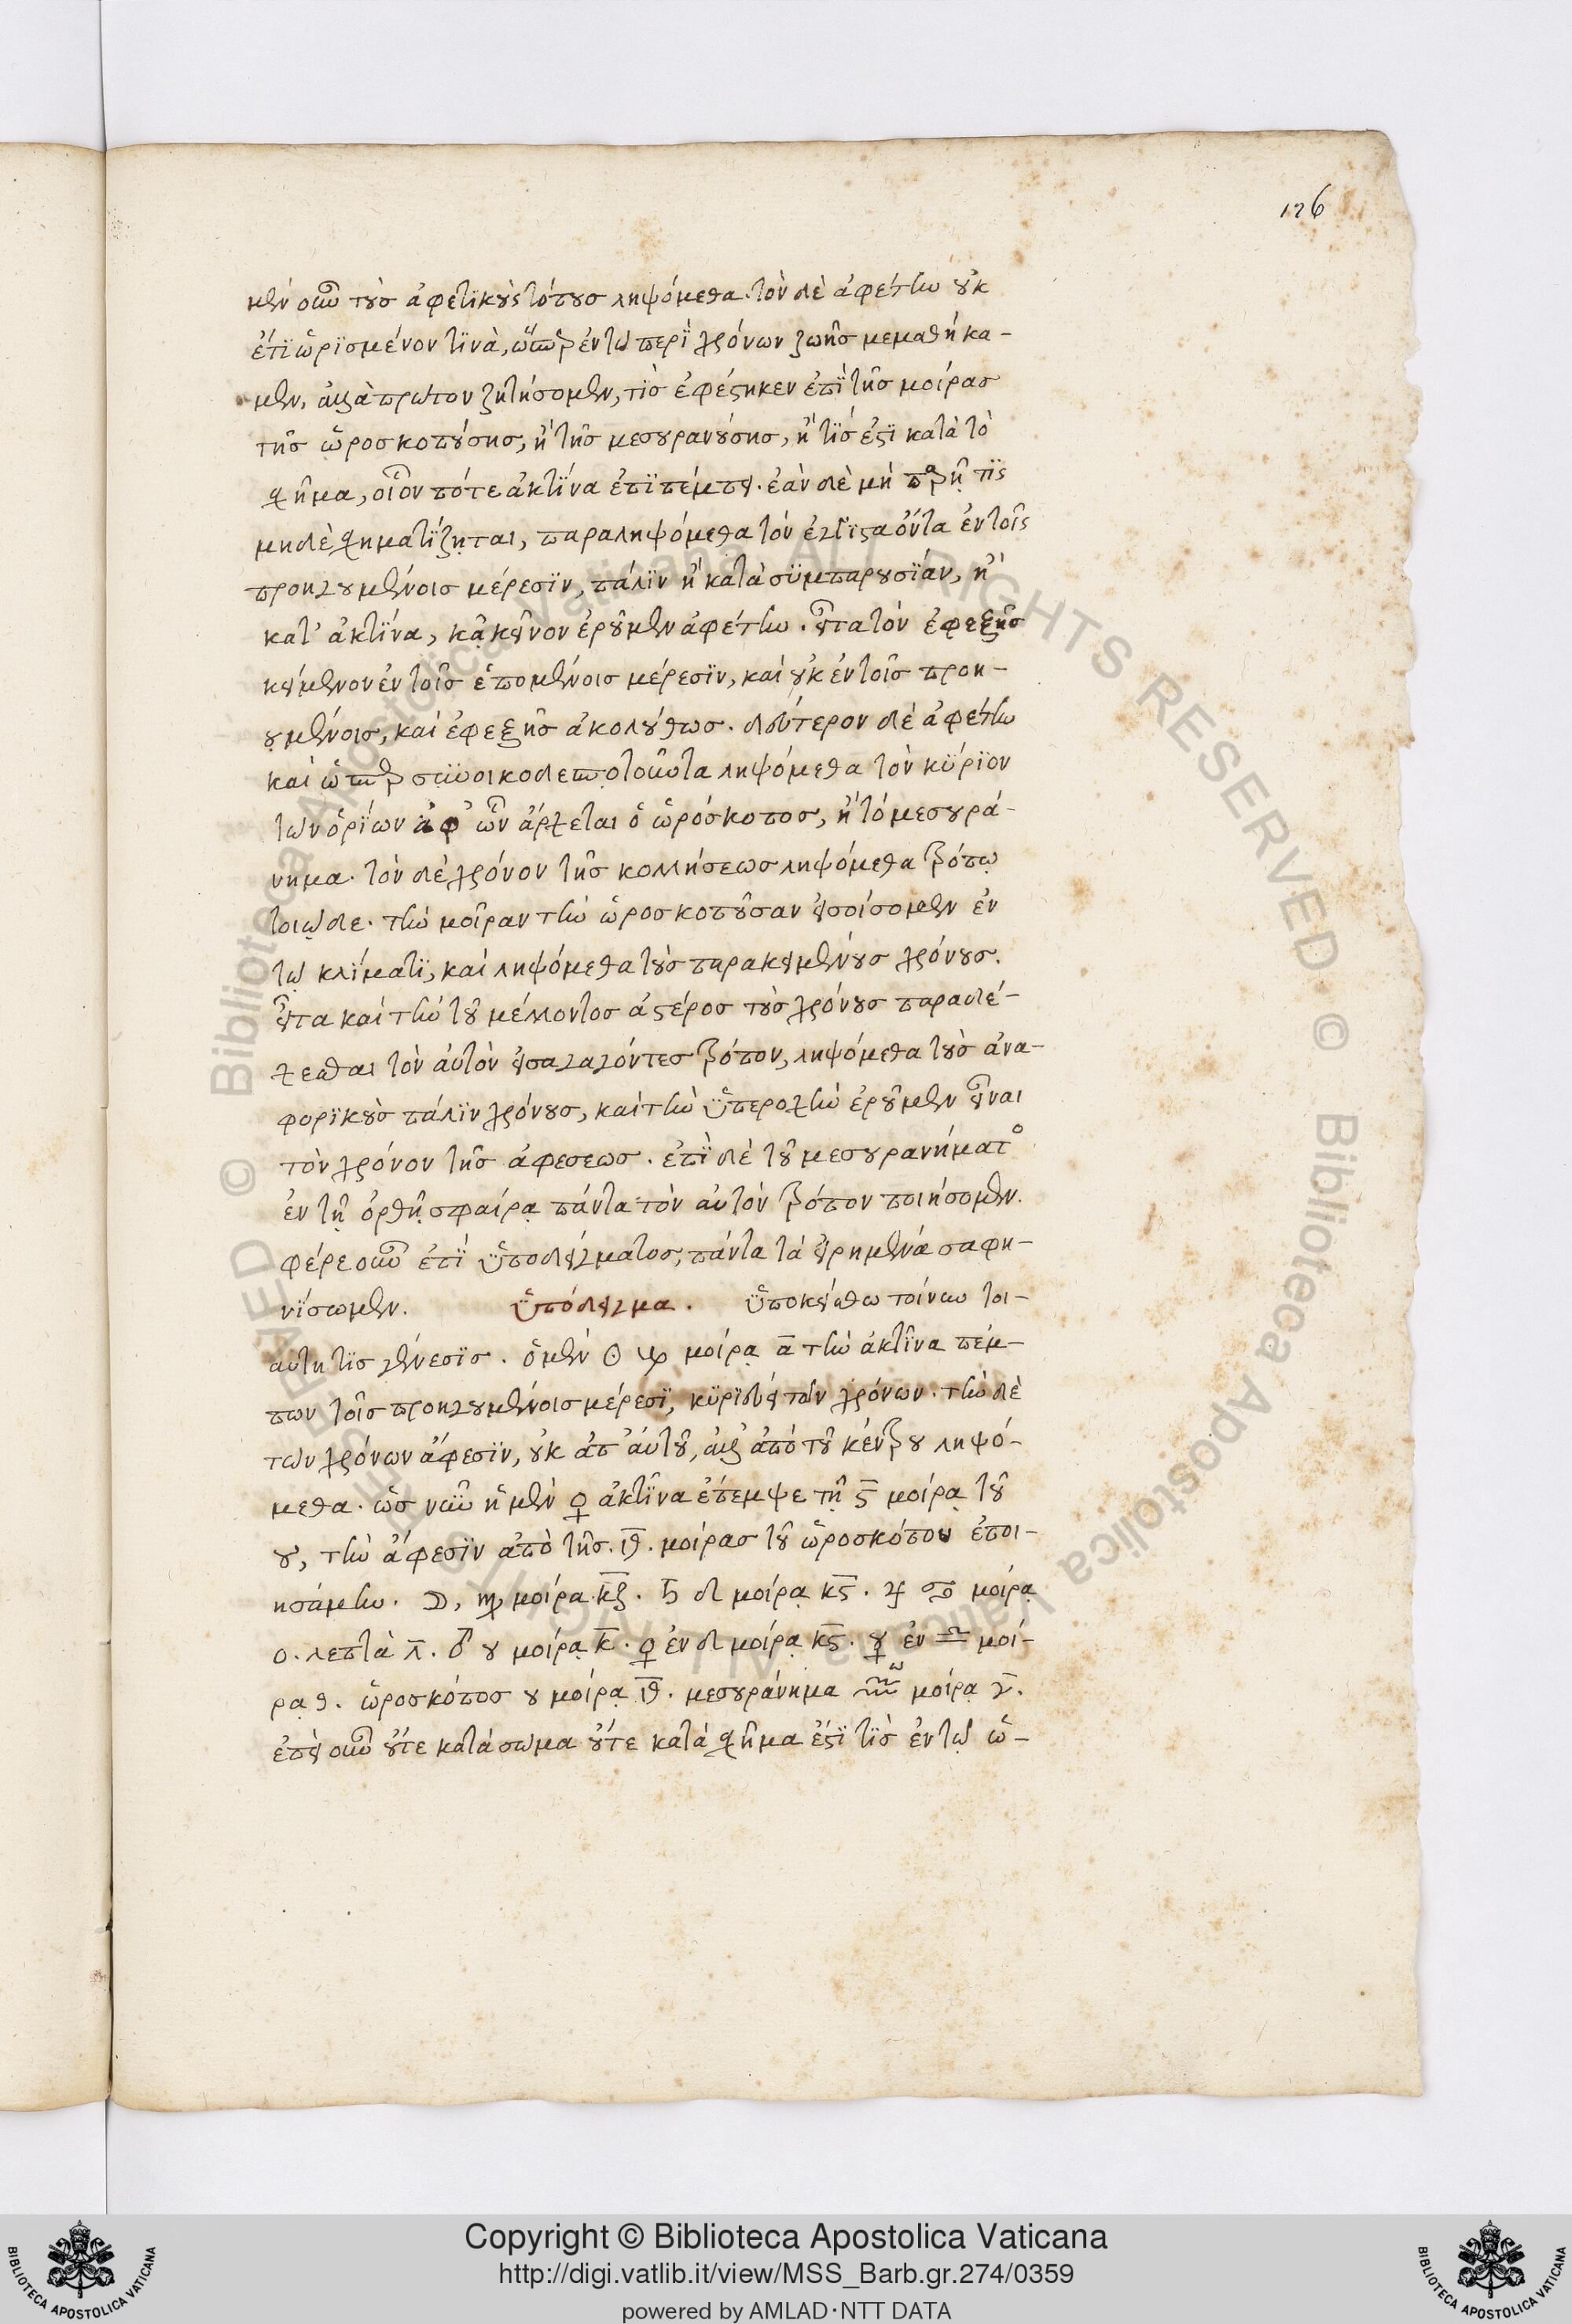 126
μὲν οὖν τοὺς ἀφετικοὺς τόπους ληψόμεθα. τὸν δὲ ἀφέτην οὐκ
ἔτι ὡρισμένον τινὰ, ὥσπερ ἐν τῷ περὶ χρόνων ζωῆς μεμαθήκα-
μεν, ἀλλὰ πρῶτον ζητήσομεν, τίς ἐφέστηκεν ἐπὶ τῆς μοίρας
τῆς ὡροσκοπούσης, ἢ τῆς μεσουρανούσης, ἢ τίς ἐστὶ κατὰ τὸ
σχῆμα, οἷον πότε ἀκτῖνα ἐπιπέμπει. ἐὰν δὲ μὴ παρῇ τὶς
μηδὲ σχηματίζηται, παραληψόμεθα τὸν ἔγγιστα ὄντα ἐν τοῖς
προηγουμένοις μέρεσιν, πάλιν ἢ κατὰ συμπαρουσίαν, ἢ
κατ' ἀκτῖνα, κἀκεῖνον ἐροῦμεν ἀφέτην. εἶτα τὸν ἐφεξῆς
κείμενον ἐν τοῖς ἑπομένοις μέρεσιν, καὶ οὐκ ἐν τοῖς προη-
ουμένοις, καὶ ἐφεξῆς ἀκολούθως. δεύτερον δὲ ἀφέτην
καὶ ὥσπερ συνοικοδεσποτοῦντα ληψόμεθα τὸν κύριον
τῶν ὁρίων ἀφ' ὧν ἄρχεται ὁ ὡρόσκοπος, ἢ τὸ μεσουρά-
νημα. τὸν δὲ χρόνον τῆς κολλήσεως ληψόμεθα τρόπῳ
τοιῷδε. τὴν μοῖραν τὴν ὡροσκοποῦσαν εἰσοίσομεν ἐν
τῷ κλίματι, καὶ ληψόμεθα τοὺς παρακειμένους χρόνους.
εἶτα καὶ τὴν τοῦ μέλλοντος ἀστέρος τοὺς χρόνους παραδέ-
χεσθαι τὸν αὐτὸν εἰσαγαγόντες τρόπον, ληψόμεθα τοὺς ἀνα-
φορικοὺς πάλιν χρόνους, καὶ τὴν ὑπεροχὴν ἐροῦμεν εἶναι
τὸν χρόνον τῆς ἀφέσεως. ἐπὶ δὲ τοῦ μεσουρανήματος
ἐν τῇ ὀρθῇ σφαίρᾳ πάντα τὸν αὐτὸν τρόπον ποιήσομεν.
φέρε οὖν ἐπὶ ὑποδείγματος, πάντα τὰ εἰρημένα σαφη-
νίσωμεν. ὑπόδειγμα. ὑποκείσθω τοίνυν τοι-
αύτη τὶς γένεσις. ὁ μὲν ☉ ♑ μοίρᾳ α̅ τὴν ἀκτῖνα πέμ-
πων τοῖς προηγουμένοις μέρεσι, κυριεύει τῶν χρόνων. τὴν δὲ
τῶν χρόνων ἄφεσιν, οὐκ ἀπ' αὐτοῦ, ἀλλ' ἀπὸ τοῦ κέντρου ληψό-
μεθα. ὡς νῦν ἡ μὲν ♀ ἀκτῖνα ἔπεμψε τῇ ς̅ μοίρᾳ τοῦ
♉, τὴν ἄφεσιν ἀπὸ τῆς. ιθ̅. μοίρας τοῦ ὡροσκόπου ἐποι-
ησάμην. ☽, ♍ μοίρᾳ. κξ̅. ♄ ♌ μοίρᾳ κς̅. ♃ ♋ μοίρᾳ
ο. λεπτὰ λ̅. ♂ ♉ μοίρᾳ κ̅. ♀ ἐν ♌ μοίρᾳ κς̅. ☿ ἐν ♎ μοί-
ρᾳ θ. ὡροσκόπος ♉ μοίρᾳ ιθ̅. μεσουράνημα ♒ μοίρᾳ γ̅.
ἐπεὶ οὖν οὔτε κατὰ σῶμα οὔτε κατὰ σχῆμα ἐστὶ τὶς ἐν τῷ ὡ-
© Biblioteca Apostolica Vaticana ALL RIGHTS RESERVED © Biblioteca Apostolica Vaticana ALL RIGHTS RESERVED
Copyright © Biblioteca Apostolica Vaticana
http://digi.vatlib.it/view/MSS_Barb.gr.274/0359
powered by AMLAD·NTT DATA
BIBLIOTECA APOSTOLICA VATICANA
BIBLIOTECA APOSTOLICA VATICANA